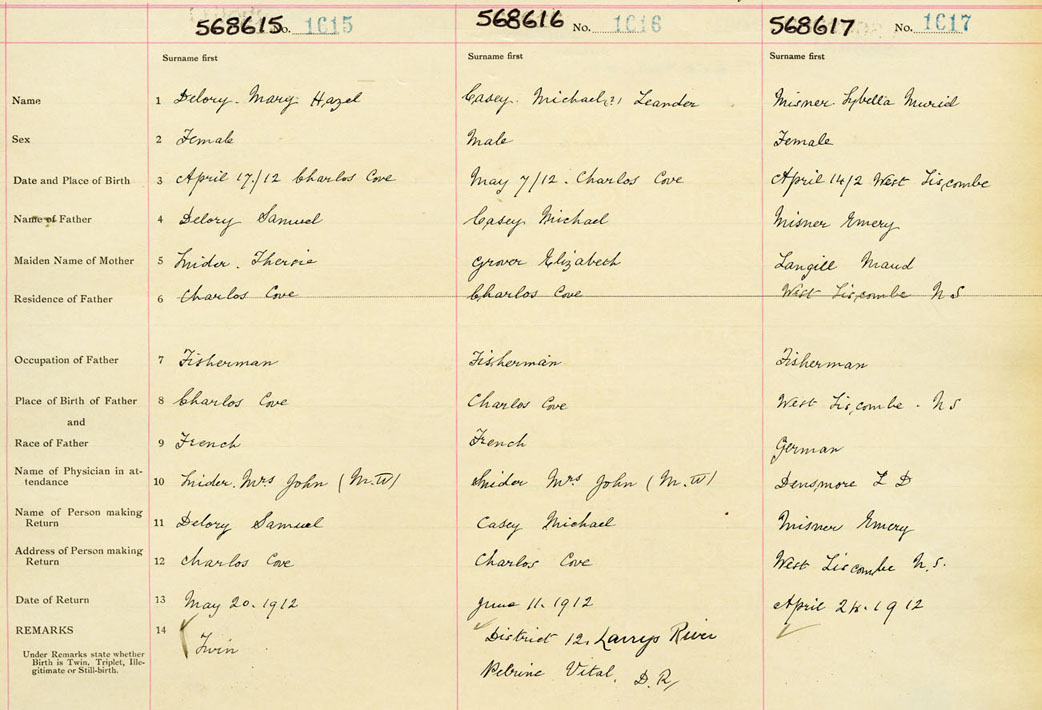 568615 No. 1615 568616 No. 1616 568617 No. 1617
Surname first Surname first Surname first
Name 1 Delory. Mary Hazel Casey. Michael Leander Misner Sybella Murid
Sex 2 Female Male Female
Date and Place of Birth 3 April 17/12 Charlos Cove May 7/12. Charlos Cove April 14/2 West Liscombe
Name of Father 4 Delory Samuel Casey Michael Misner Emery
Maiden Name of Mother 5 Snider. Grover Elizabeth Langill Maud
Residence of Father 6 Charlos Cove Charlos Cove West Liscombe N S
Occupation of Father 7 Fisherman Fisherman Fisherman
Place of Birth of Father 8 Charlos Cove Charlos Cove West Liscombe. N S
and
Race of Father 9 French French German
Name of Physician in at-
tendance 10 Snider. Mrs John (M.W) Snider Mrs John (M.W) Densmore L D
Name of Person making
Return 11 Delory Samuel Casey Michael Misner Emery
Address of Person making
Return 12 Charlos Cove Charlos Cove West Liscombe N.S.
Date of Return 13 May 20. 1912 June 11. 1912 April 24. 1912
REMARKS 14 Twin District 12. Larrys River
Under Remarks state whether
Birth is Twin, Triplet, Ille-
gitimate or Still-birth.
Pelrine Vital. D.R.